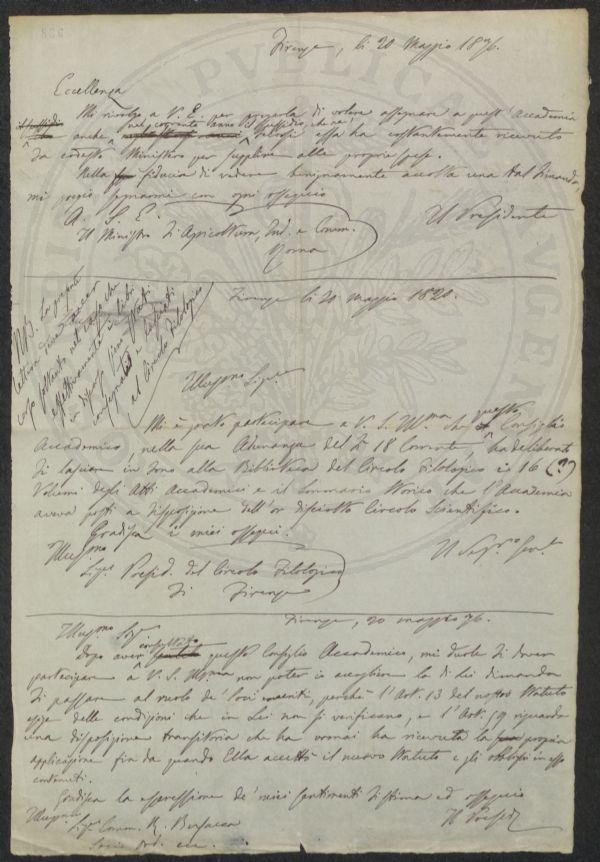 Firenze, li 20 Maggio 1876.
Eccellenza
Mi rivolgo a V. E. per pregarla di volere assegnare a quest'Accademia
anche nel corrente anno il sussidio, che essa ha costantemente ricevuto
da codesto Ministero per supplire alle proprie spese.
Nella fiducia di vedere benignamente accolta una tal domanda,
mi pregio segnarmi con ogni ossequio
A. S. E.
Il Presidente
Il Ministro di Agricoltura, Ind. e Comm.
Roma
NB. La presente
lettera dovrà
solo soltanto nel caso che
effettivamente i libri
in discorso siano stati
consegnati
al Circolo Filologico
Firenze li 20 maggio 18
Illustmo Sigre
Mi è grato partecipare a V. S. Illma che questo Consiglio
Accademico, nella sua Adunanza del dì 18 Corrente, ha deliberato
di lasciare in dono alla Biblioteca del Circolo Filologico i 16 (?)
Volumi degli Atti Accademici e il Sommario Storico che l'Accademia
aveva posti a disposizione dell'or disciolto Circolo Scientifico.
Gradisca i miei ossequi.
Illustmo
Il Segro Genle
Sigr Presid. del Circolo Filologico
di Firenze
Firenze, 20 maggio 76.
Illustmo Sigr
Dopo aver consultato questo Consiglio Accademico, mi duole di dover
partecipare a V. S. Illma non poter io accogliere la di Lei dimanda
di passare al ruolo de' Soci emeriti, perchè l'Art. 13 del nostro Statuto
esige delle condizioni che in Lei non si verificano, e l'Art. 59 riguarda
una disposizione transitoria che ha ormai ha ricevuta la propria
applicazione fin da quando Ella accettò il nuovo Statuto e gli obblighi in esso
contenuti.
Gradisca la espressione de' miei sentimenti di stima ed ossequio
Il Presid
Sigr Comm. R.
Socio Ord. ecc.